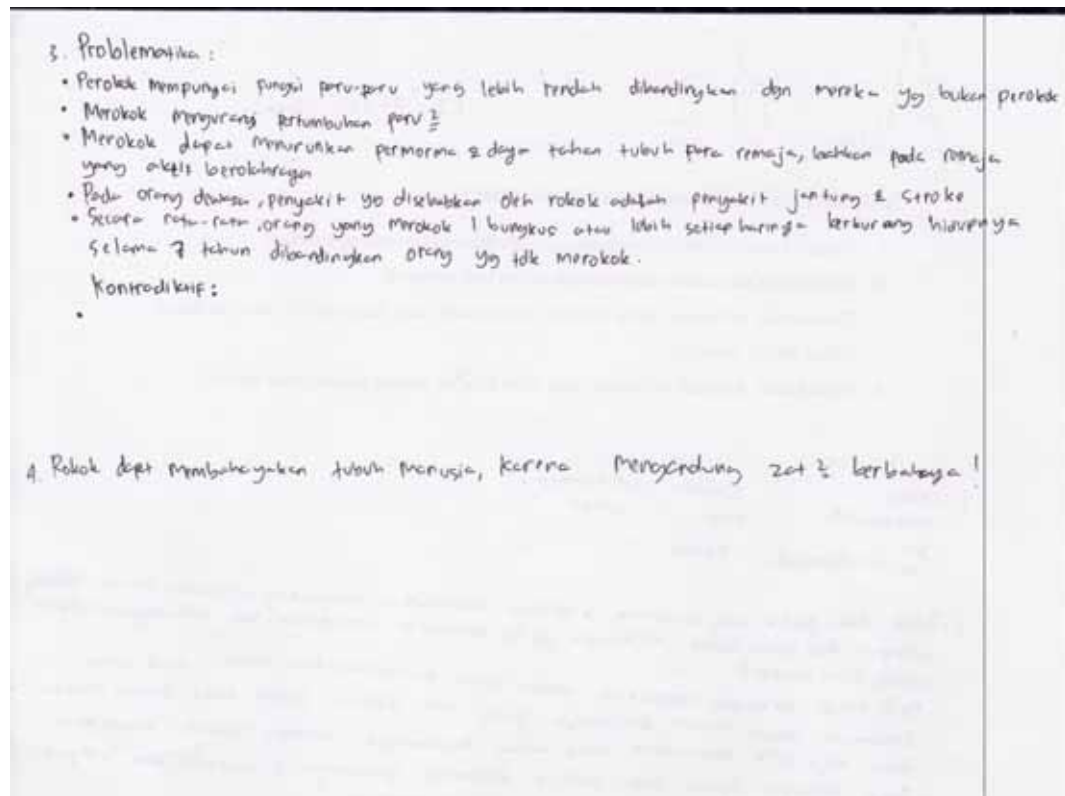 3. Problematika :
• Perokok mempunyai fungsi paru-paru yang lebih rendah dibandingkan dgn mereka yg bukan perokok
• Merokok mengurangi pertumbuhan paru 2
• Merokok dapat menurunkan permorma & daya tahan tubuh para remaja, bahkan pada remaja
yang aktif berolahraga
• Pada orang dewasa, penyakit yg disebabkan oleh rokok adalah penyakit jantung & stroke
• Secara rata-rata, orang yang merokok 1 bungkus atau lebih setiap harinya berkurang hidupnya
selama 7 tahun dibandingkan orang yg tdk merokok.
Kontradiktif :
•
4. Rokok dapat membahayakan tubuh manusia, karena mengandung zat 2 berbahaya !